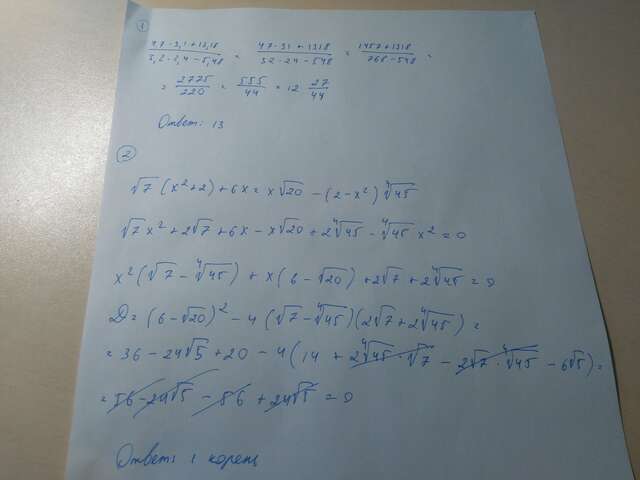 1
(4,7 · 3,1 + 13,18) / (3,2 · 2,4 - 5,48) = (47 · 31 + 1318) / (32 · 24 - 548) = (1457 + 1318) / (768 - 548) =
= 2775/220 = 555/44 = 12 27/44
Ответ: 13
2
√7 (x² + 2) + 6x = x√20 - (2 - x²) ∜45
√7 x² + 2√7 + 6x - x√20 + 2∜45 - ∜45 x² = 0
x² (√7 - ∜45) + x (6 - √20) + 2√7 + 2∜45 = 0
D = (6 - √20)² - 4 (√7 - ∜45)(2√7 + 2∜45) =
= 36 - 24√5 + 20 - 4 (14 + 2∜45 · √7 - 2√7 · ∜45 - 6√5) =
= 56 - 24√5 - 56 + 24√5 = 0
Ответ: 1 корень